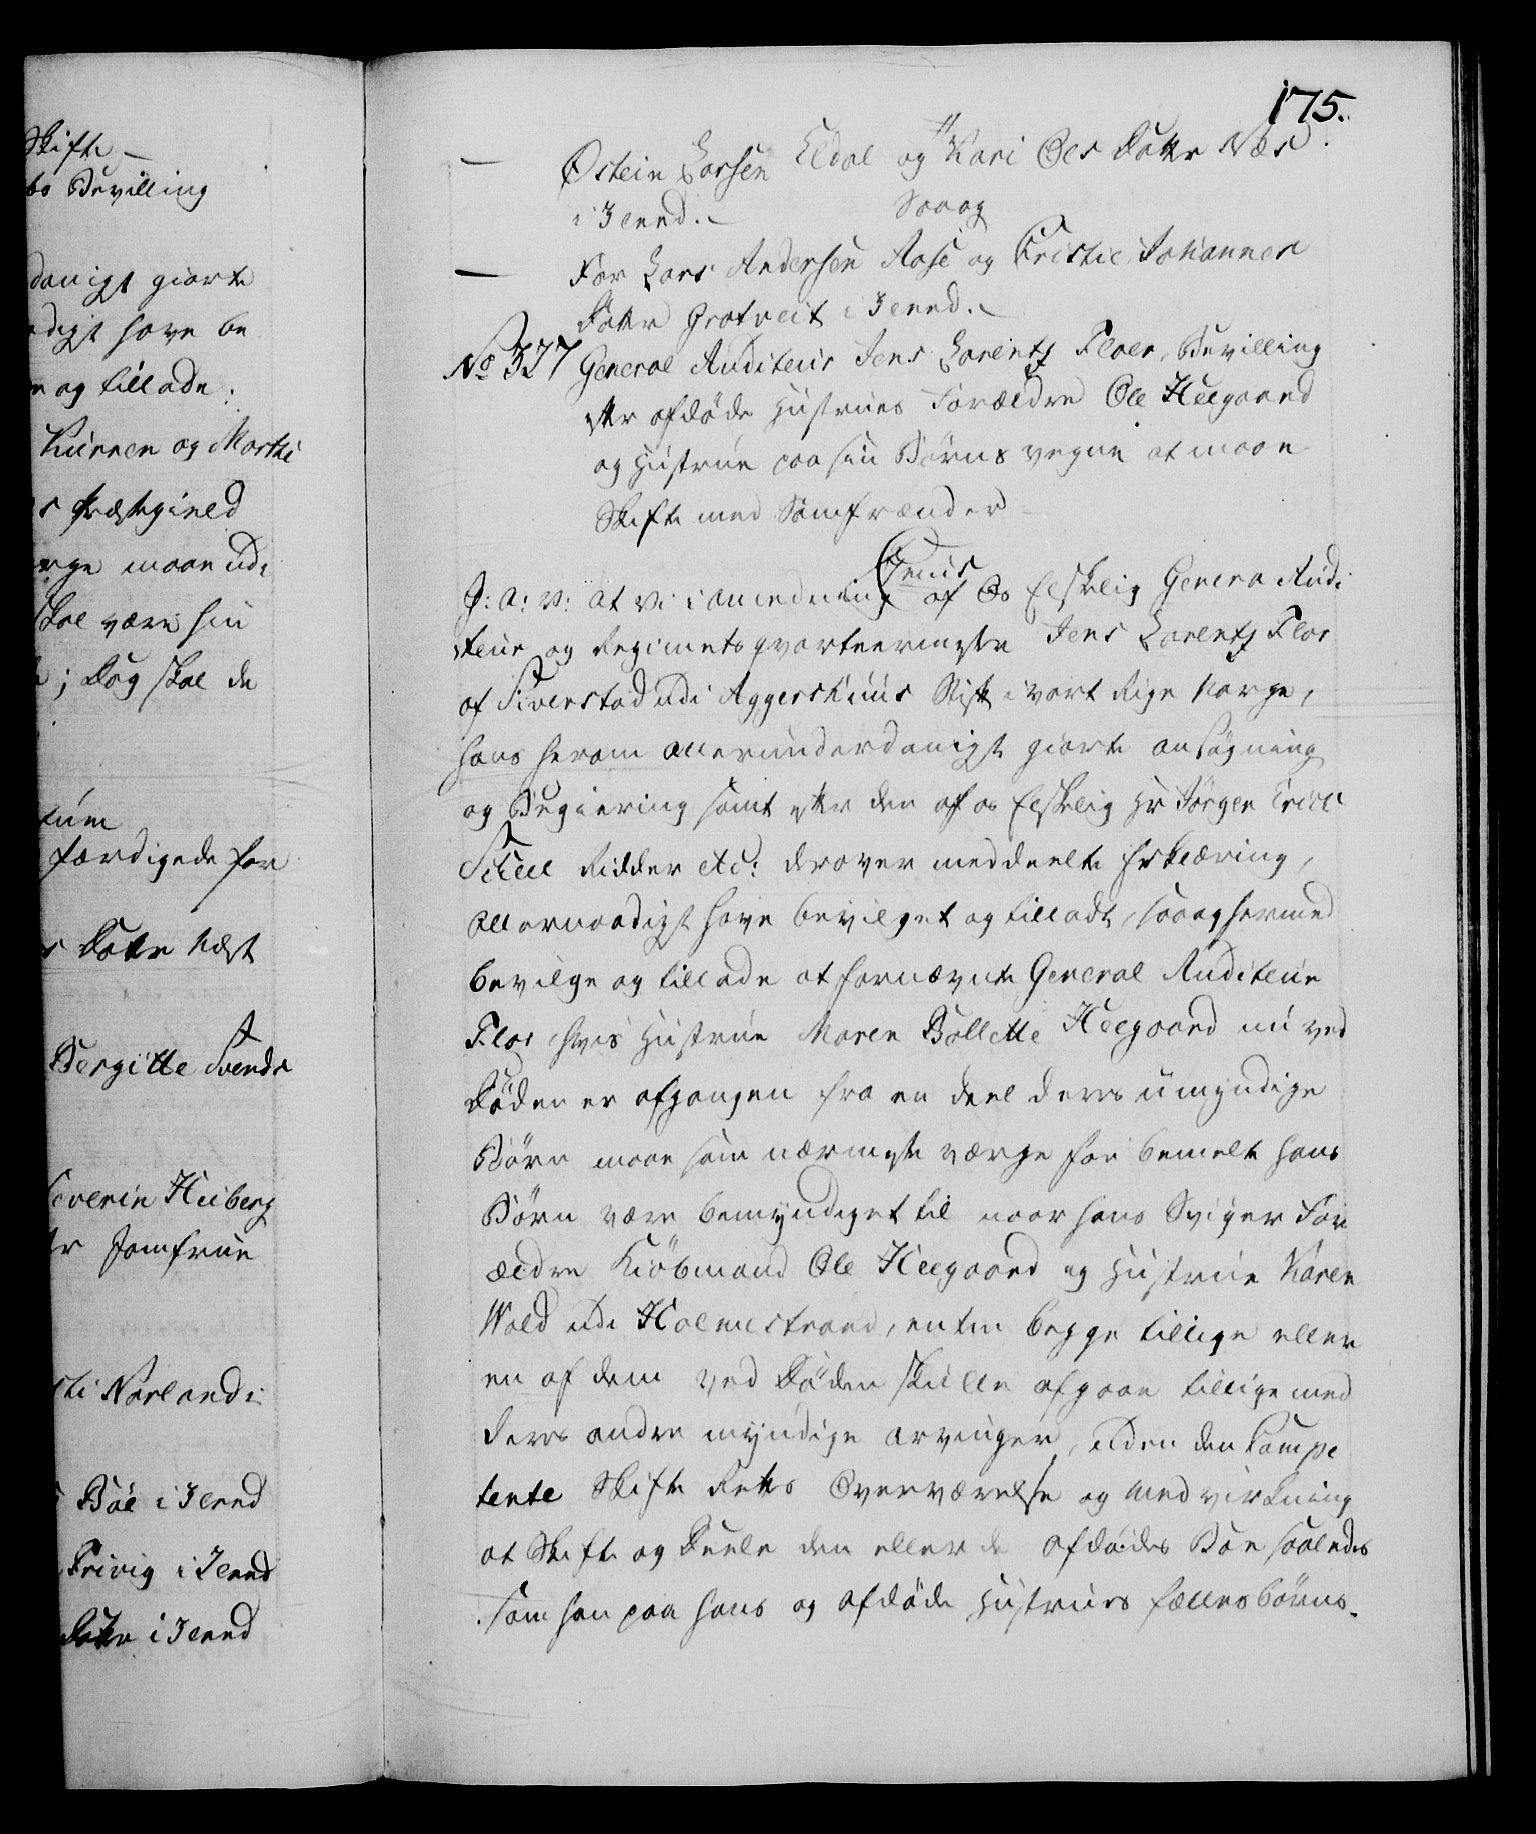 Skifte
bs Bevilling
danigt giorte
adigt have be
og tillade.
Kuunen og Marthe
Præstegield
erge maae udi
skal være sin
; dog skal de
tum
færdigede for
Datter Næst
Bergitte Svends
Severin Heiberg
Jomfrue
Narland i
Bøe i Ilend
Frivig i Ilend
Datter i Ilend
175.
Østein Larsen Eldal og Kari Ols Datter Næs
i Ilend.
Saaog
For Lars Andersen Aase og Cristie Johannes
Datter Grotveit i Ilend.
No 327 General Auditeur Jens Lorentz Floer, Bevilling
efter afdøde Hustrues Forældre Ole Heegaard
og Hustrue paa sine Børns vegne at maae
Skifte med Samfrænder
G: A: V: at Vi i anledning af Os Elskelig Genera Audi
teur og Regimentsqvarteermester Jens Lorentz Flor
af Siverstad udi Aggershuus Stift i vort Rige Norge,
hans herom allerunderdanigst giorte ansøgning
og Begiering samt efter den af os Elskelig Hr Jørgen Erich
Scheel Ridder etc: derover meddeelte Erklæring,
allernaadigst have bevilget og tilladt, saaog hermed
bevilge og tillade at fornævnte General Auditeur
Flor hvis Hustrue Maren Bollette Heegaard nu ved
Døden er afgangen fra en deel deres umyndige
Børn maae som nærmeste værge for bemelte hans
Børn være bemyndiget til naar hans Sviger For
ældre Kiøbmand Ole Heegaard og Hustrue Karen
Wold udi Holmestrand, enten begge tillige eller
en af dem ved Døden skulle afgaae tillige med
deres andre myndige arvinger, uden den Compe
tente Skifte Retts Overværelse og Medvirkning
at Skifte og Deele den eller de afdødes Boe saaledes
som han paa hans og afdøde Hustrues fælles børns